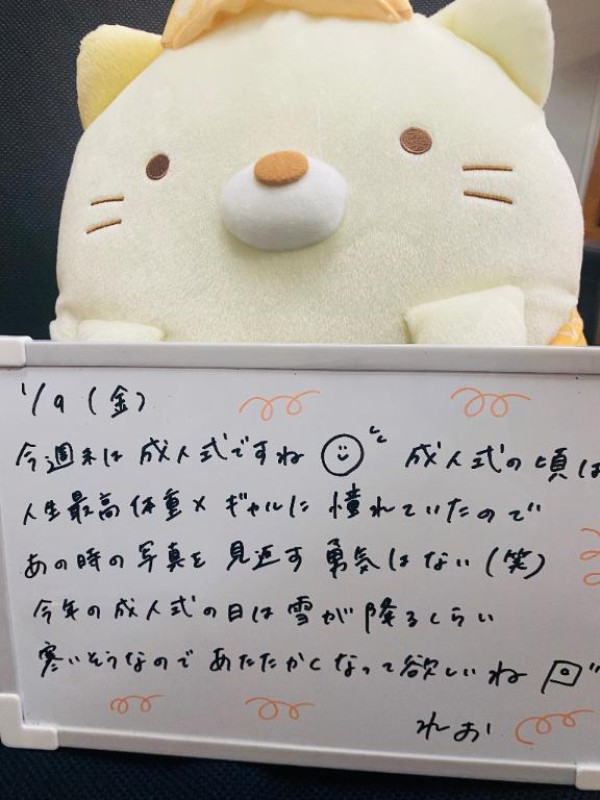 1/9（金）
今週末は成人式ですね 成人式の頃は
人生最高体重×ギャルに憧れていたので
あの時の写真を見返す勇気はない（笑）
今年の成人式の日は雪が降るくらい
寒いそうなのであたたかくなって欲しいね
れお